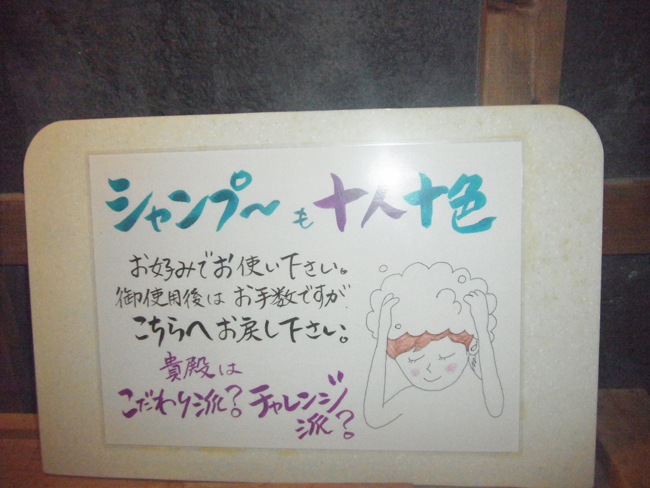 シャンプ〜も十人十色
お好みでお使い下さい。
御使用後はお手数ですが
こちらへお戻し下さい。
貴殿は
こだわり派?チャレンジ
派?